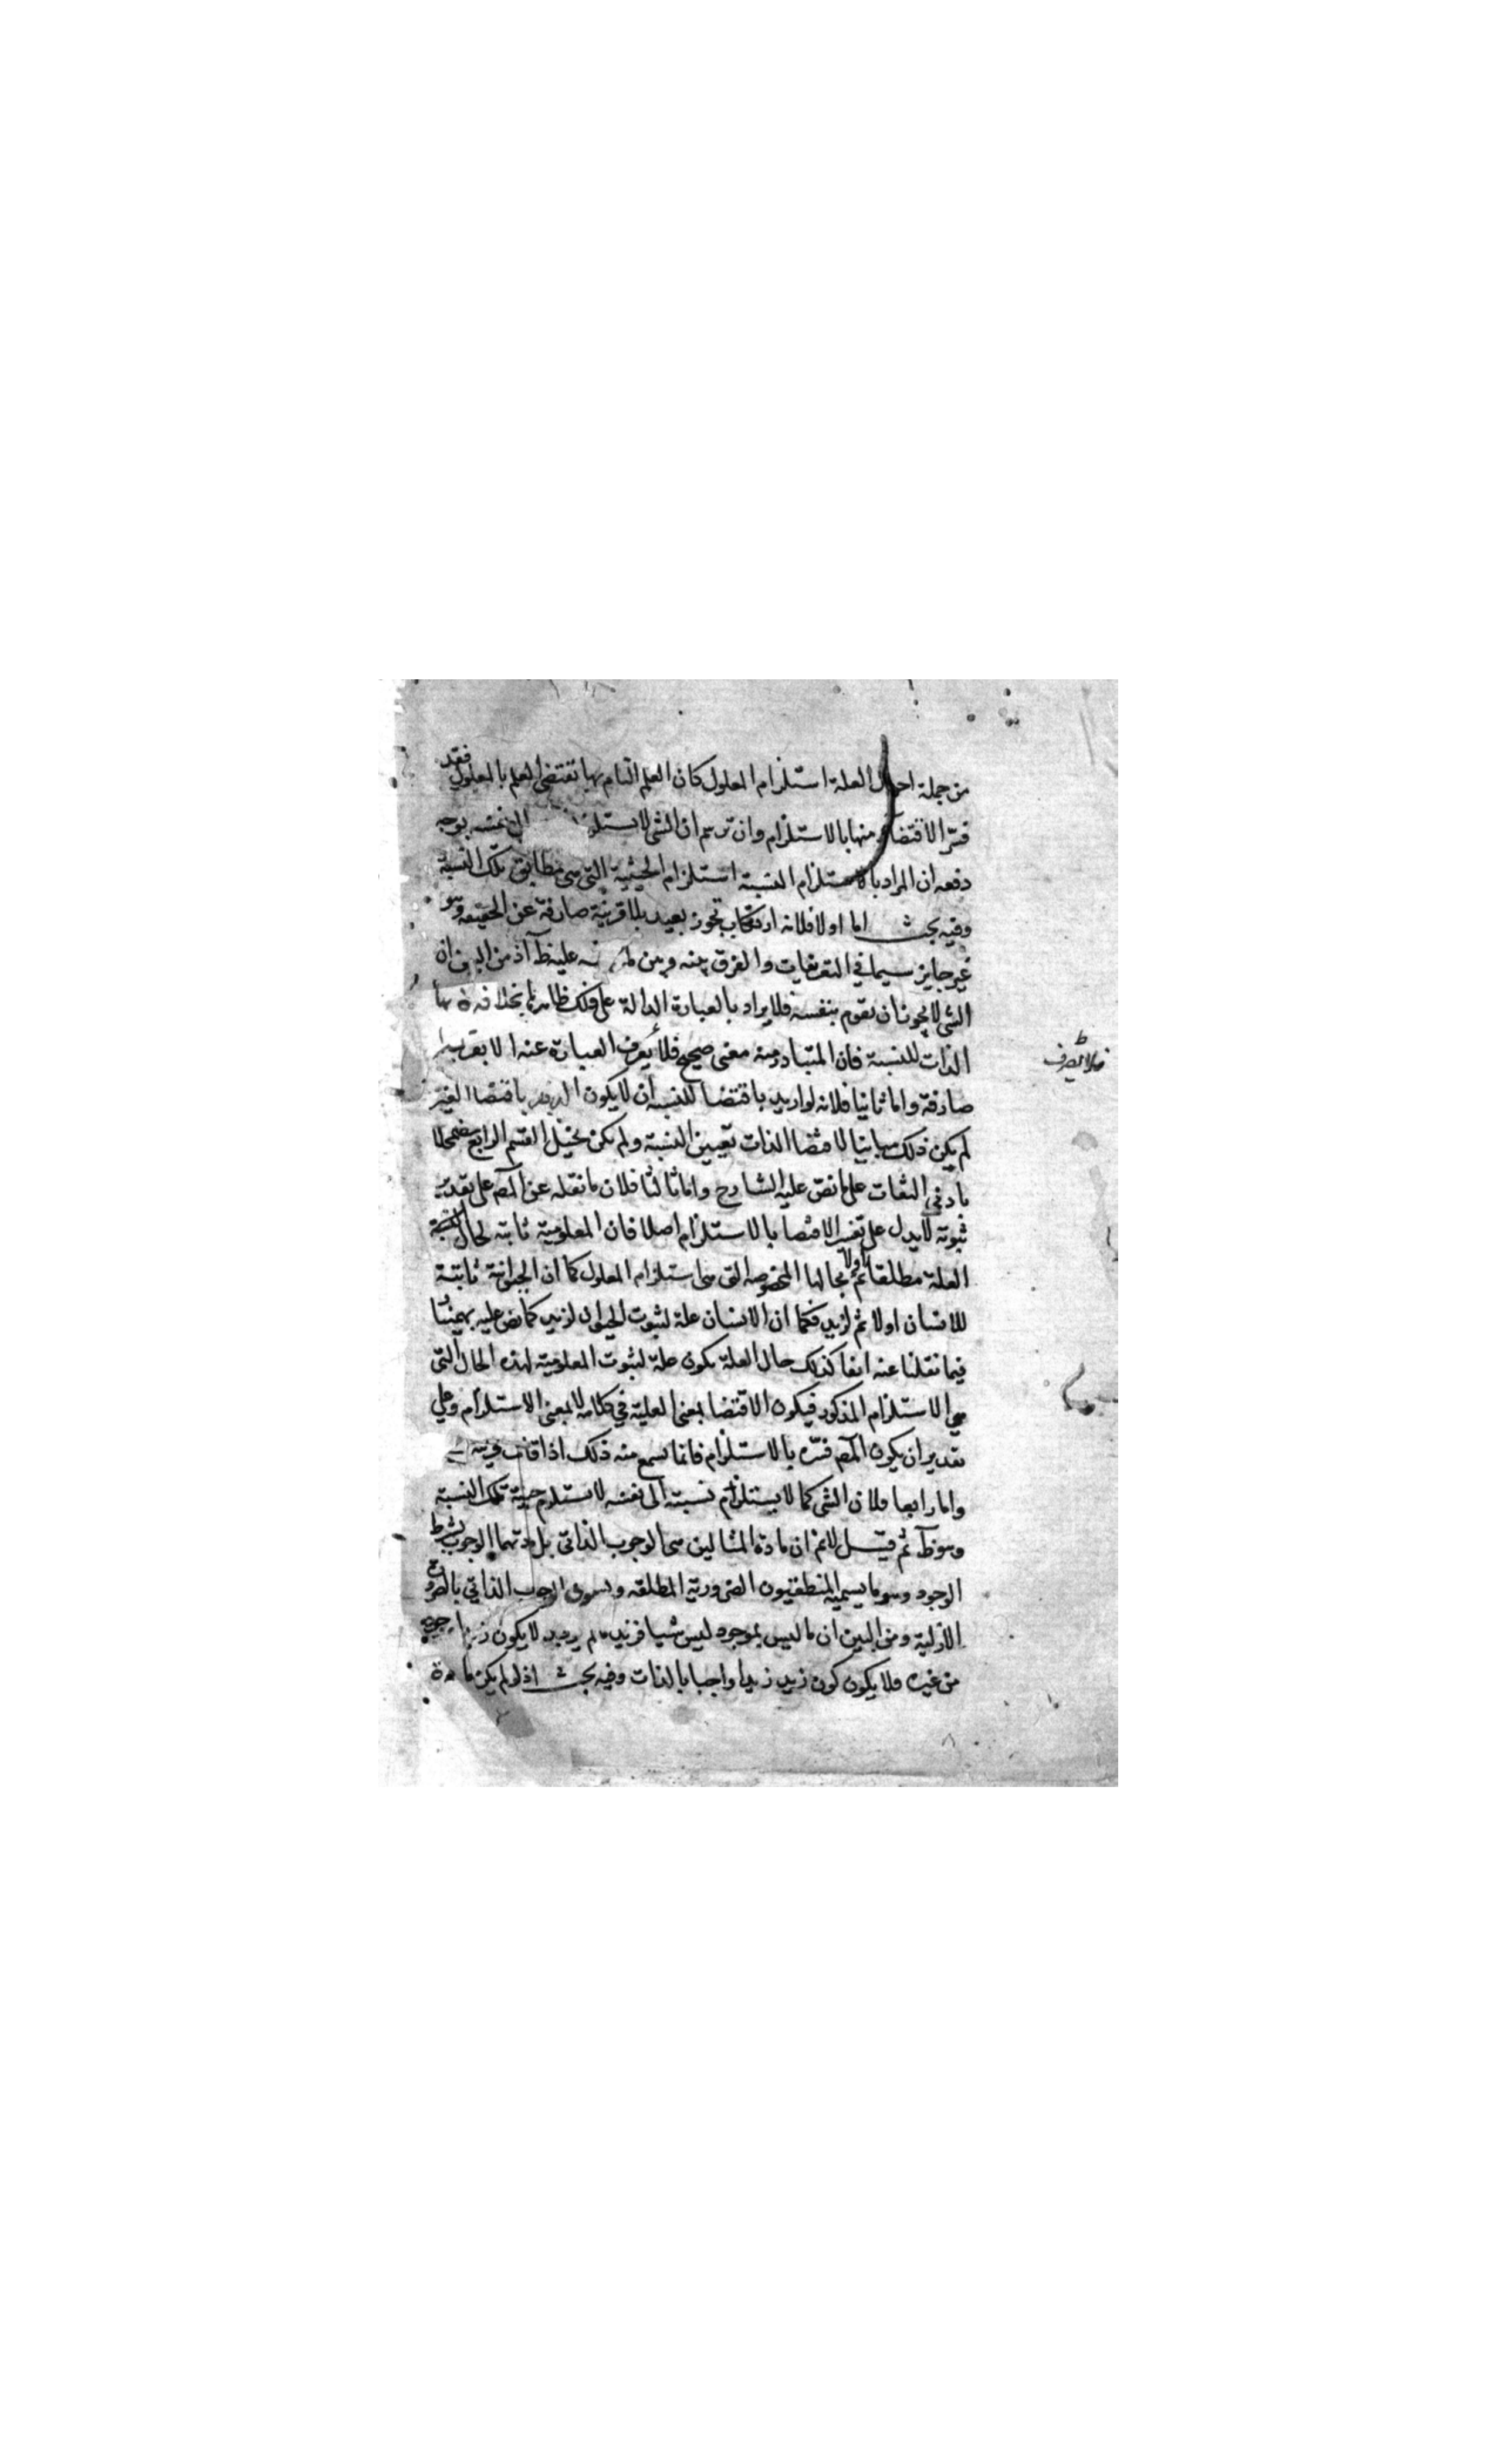 من جملة احوال العلة استلزام المعلول كان العلم التام بها تقتضى العلم بالمعلول فقد
فسّر الاقتضاء منها بالاستلزام وان الشى لا نفسه بوجه
دفعه ان المراد بالاستلزام النسبة استلزام الحيثية التى هى مطابق تلك النسبة
وفيه بحث اما اولا فلانه ارتكاب تجوز بعيد بلا قرينة صارفة عن الحقيقه وهو
غير جايز سيما فى التعريفات والفرق بينه وبين عليه ظ آذ من البين ان
الشى لا يجوز ان يقوم بنفسه فلا يراد بالعبارة الدالة على ذلك ظاهرا بخلاف
الذات للنسبة فان المتبادر منه معنى صحيح فلا يصرف العبارة عنه الا
فلا يصرف ظ
صارفة واما ثانيا فلانه لو اريد باقتضا النسبه ان لا يكون باقتضا الغير
لم يكن ذلك مباينا لاقتضا الذات تعيين النسبة ولم يكن تخيل القسم الرابع مضمحلا
بادنى التفات على ما نصّ عليه الشارح واما ثالثا فلان ما نقله عن المص على تقدير
ثبوته لا يدل على تفسير الاقتضا بالاستلزام اصلا فان المعلومية ثابته لحال
العلة مطلقا اولا ثم لحالها المخصوصه التى هى استلزام المعلول كما ان الحيوانية ثابتة
للانسان اولا ثم لزيد فكما ان الانسان علة لثبوت الحيوان لزيد كما نص عليه بهمنيار
فيما نقلنا عنه انفا كذلك حال العلة يكون علة لثبوت المعلومية لهذه الحال التى
هى الاستلزام المذكور فيكون الاقتضا بمعنى العلية فى كلامه لا بمعنى الاستلزام وعلى
تقدير ان يكون المص فسّره بالاستلزام فانما يسمع منه ذلك اذا اقام قرينة
واما رابعا فلان الشى كما لا يستلزم نسبته الى نفسه لا يستلزم حيثية تلك النسبة
وهو ظ آ ثم قيل لانم ان مادة المثالين هى الوجوب الذاتى بل مادتهما الوجوب بشرط
الوجود وهو ما يسميه المنطقيون الضرورية المطلقه ويسمون الوجوب الذاتي بالضرورة
الازلية ومن البين ان ما ليس بموجود ليس شيا فزيد ما لم يوجد لا يكون
من غيره فلا يكون كون زيد زيدا واجبا بالذات وفيه بحث اذ لو لم يكن مادة